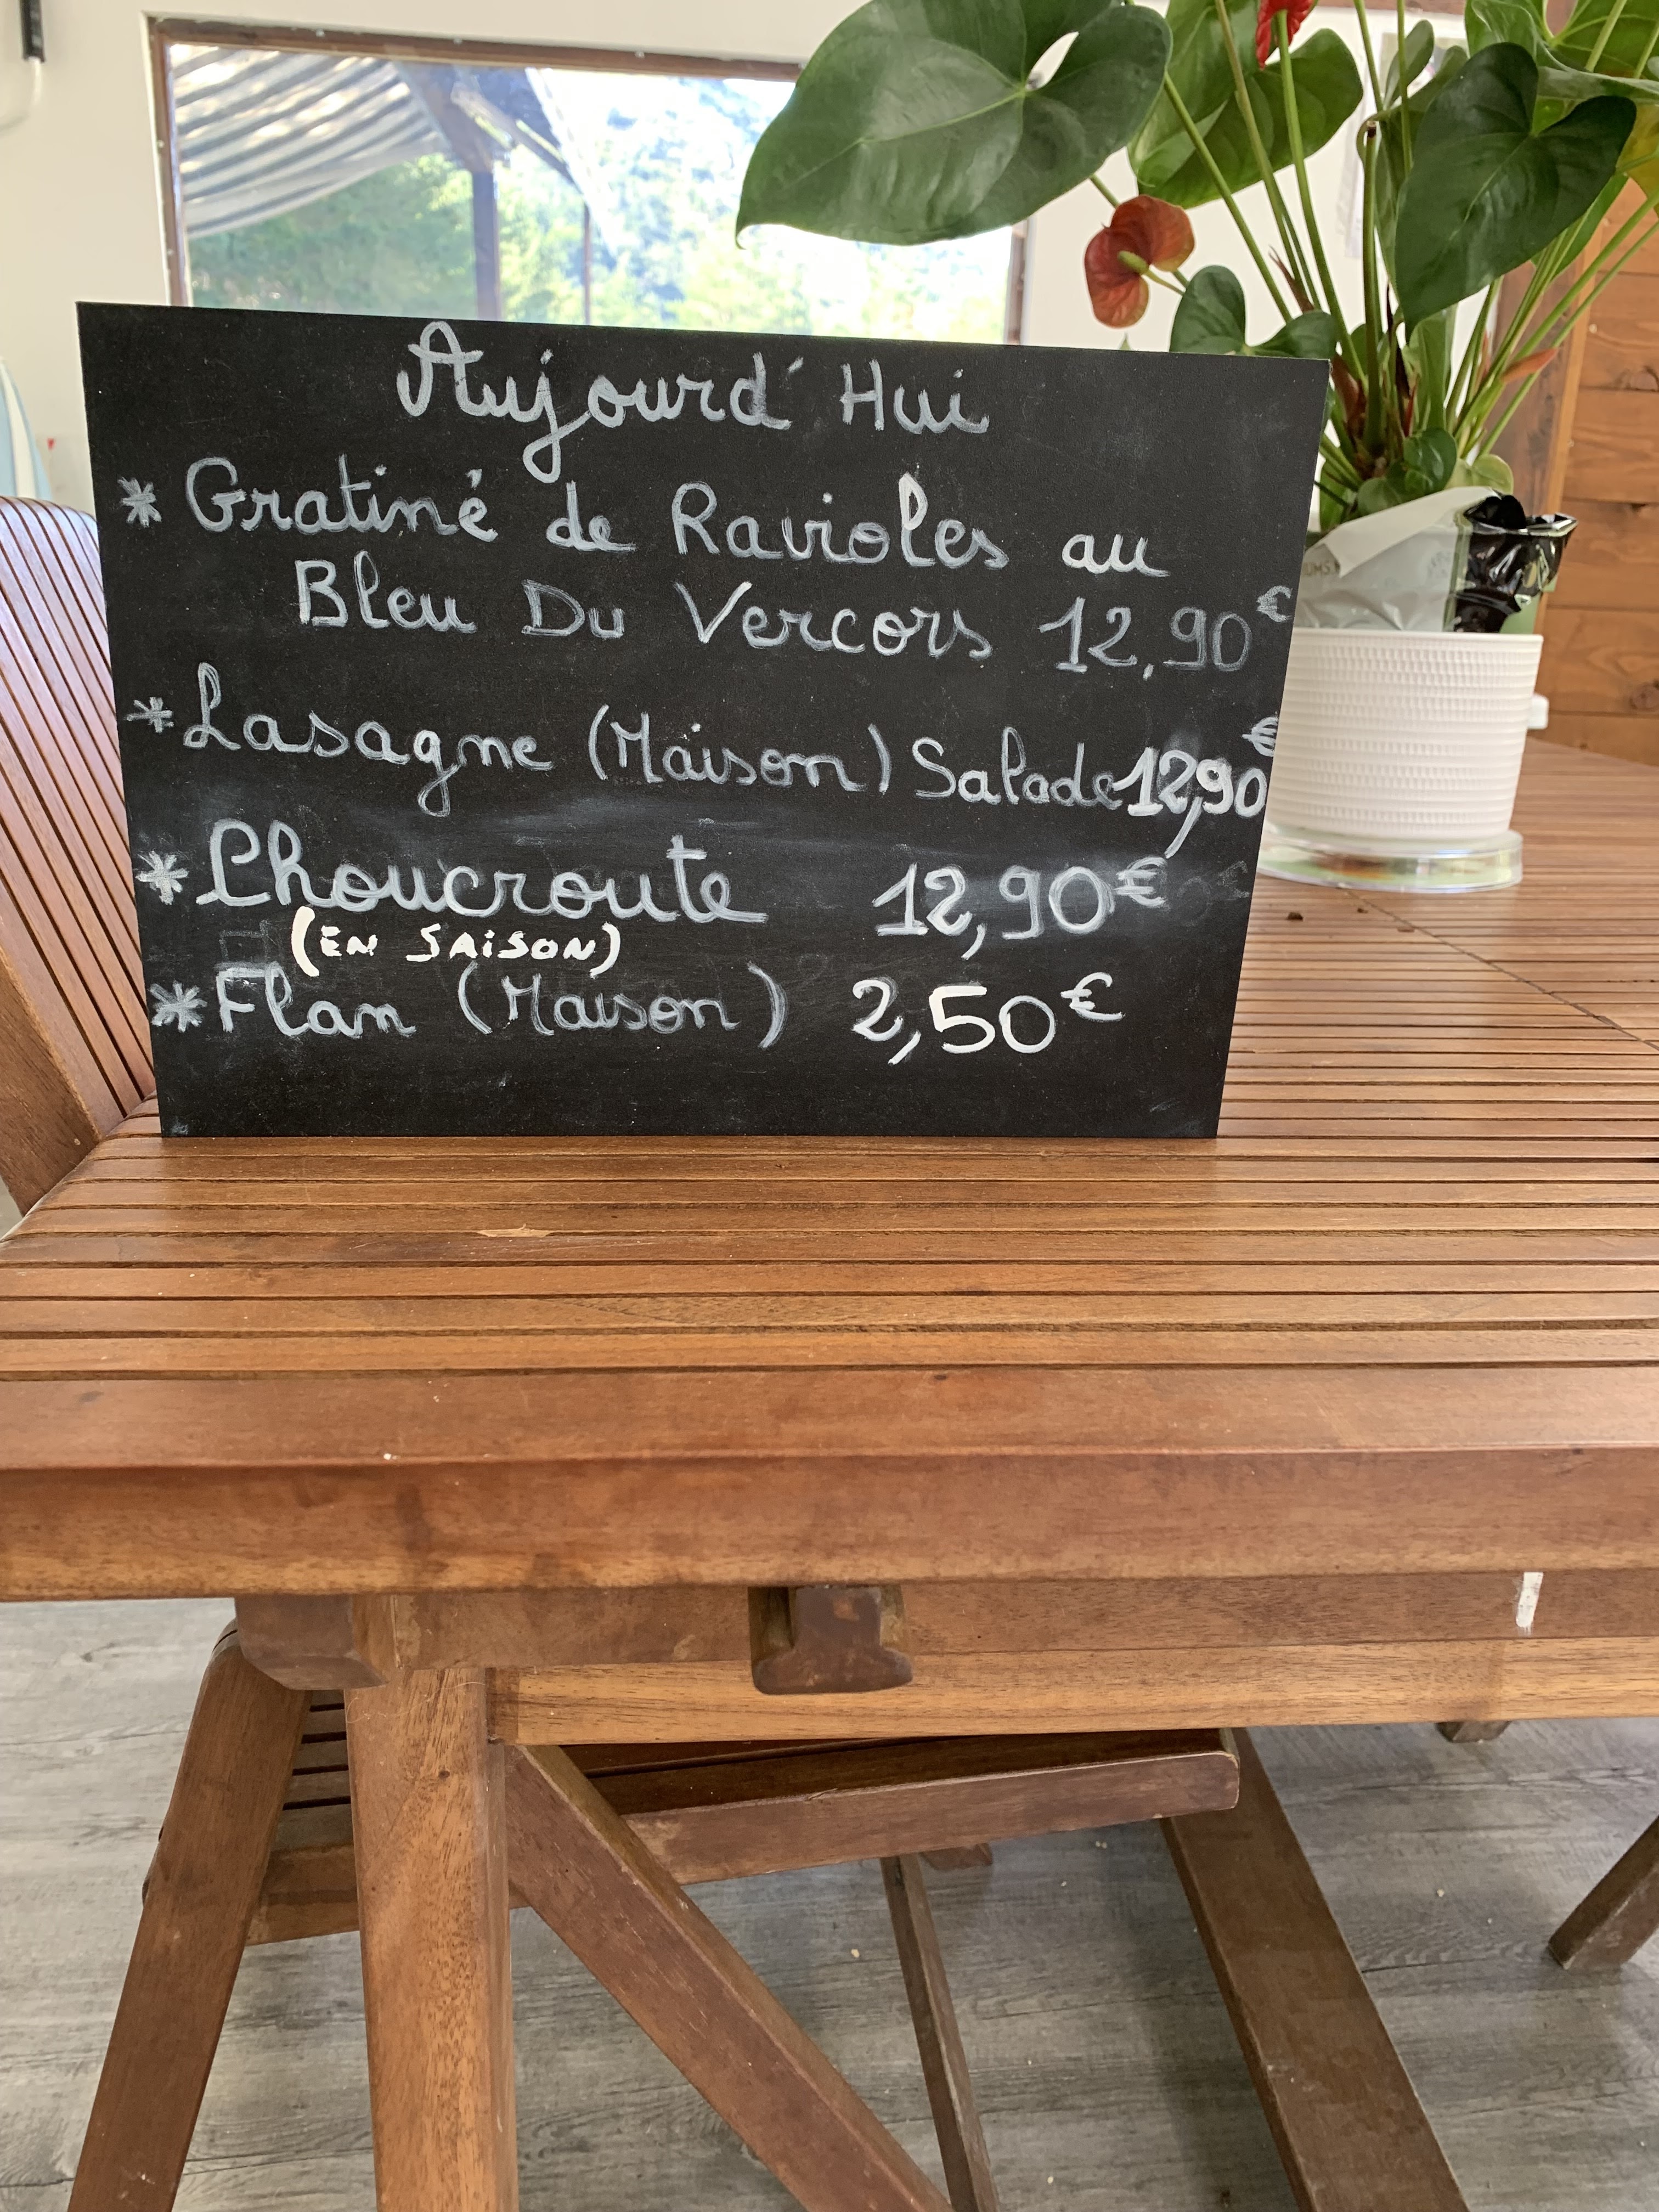 Aujourd'Hui
* Gratiné de Ravioles au
Bleu Du Vercors 12,90€
* Lasagne (Maison) Salade 12,90€
* Choucroute 12,90€
(EN SAiSON)
* Flan (Maison) 2,50€